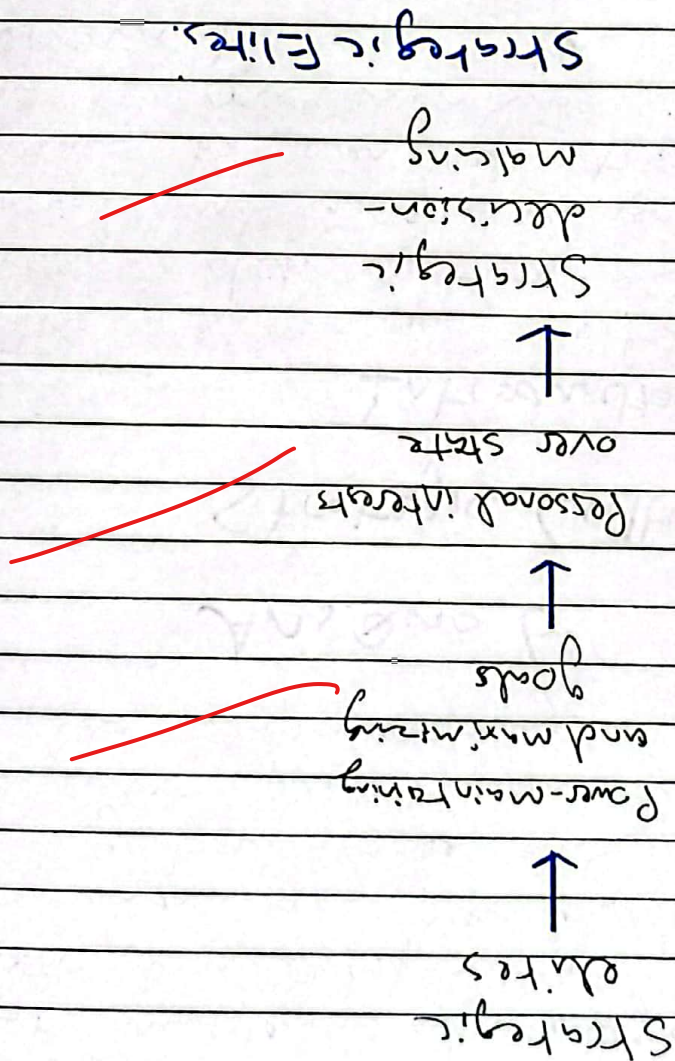 Strategic
elites
Power-maintaining
and maximizing
goals
Personal interests
over state
Strategic
decision-
making
Strategic Elites.